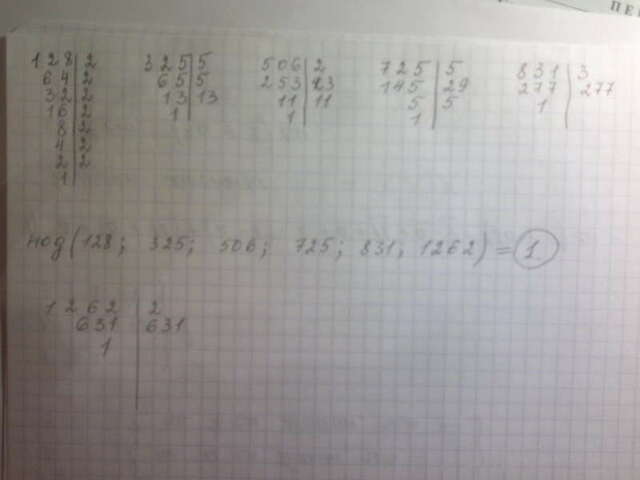 ПЕ
128|2 325|5 506|2 725|5 831|3
64|2 65|5 253|23 145|29 277|277
32|2 13|13 11|11 5|5 1
16|2 1 1 1
8|2
4|2
2|2
1
нод(128; 325; 506; 725; 831, 1262) = 1
1262|2
631|631
1